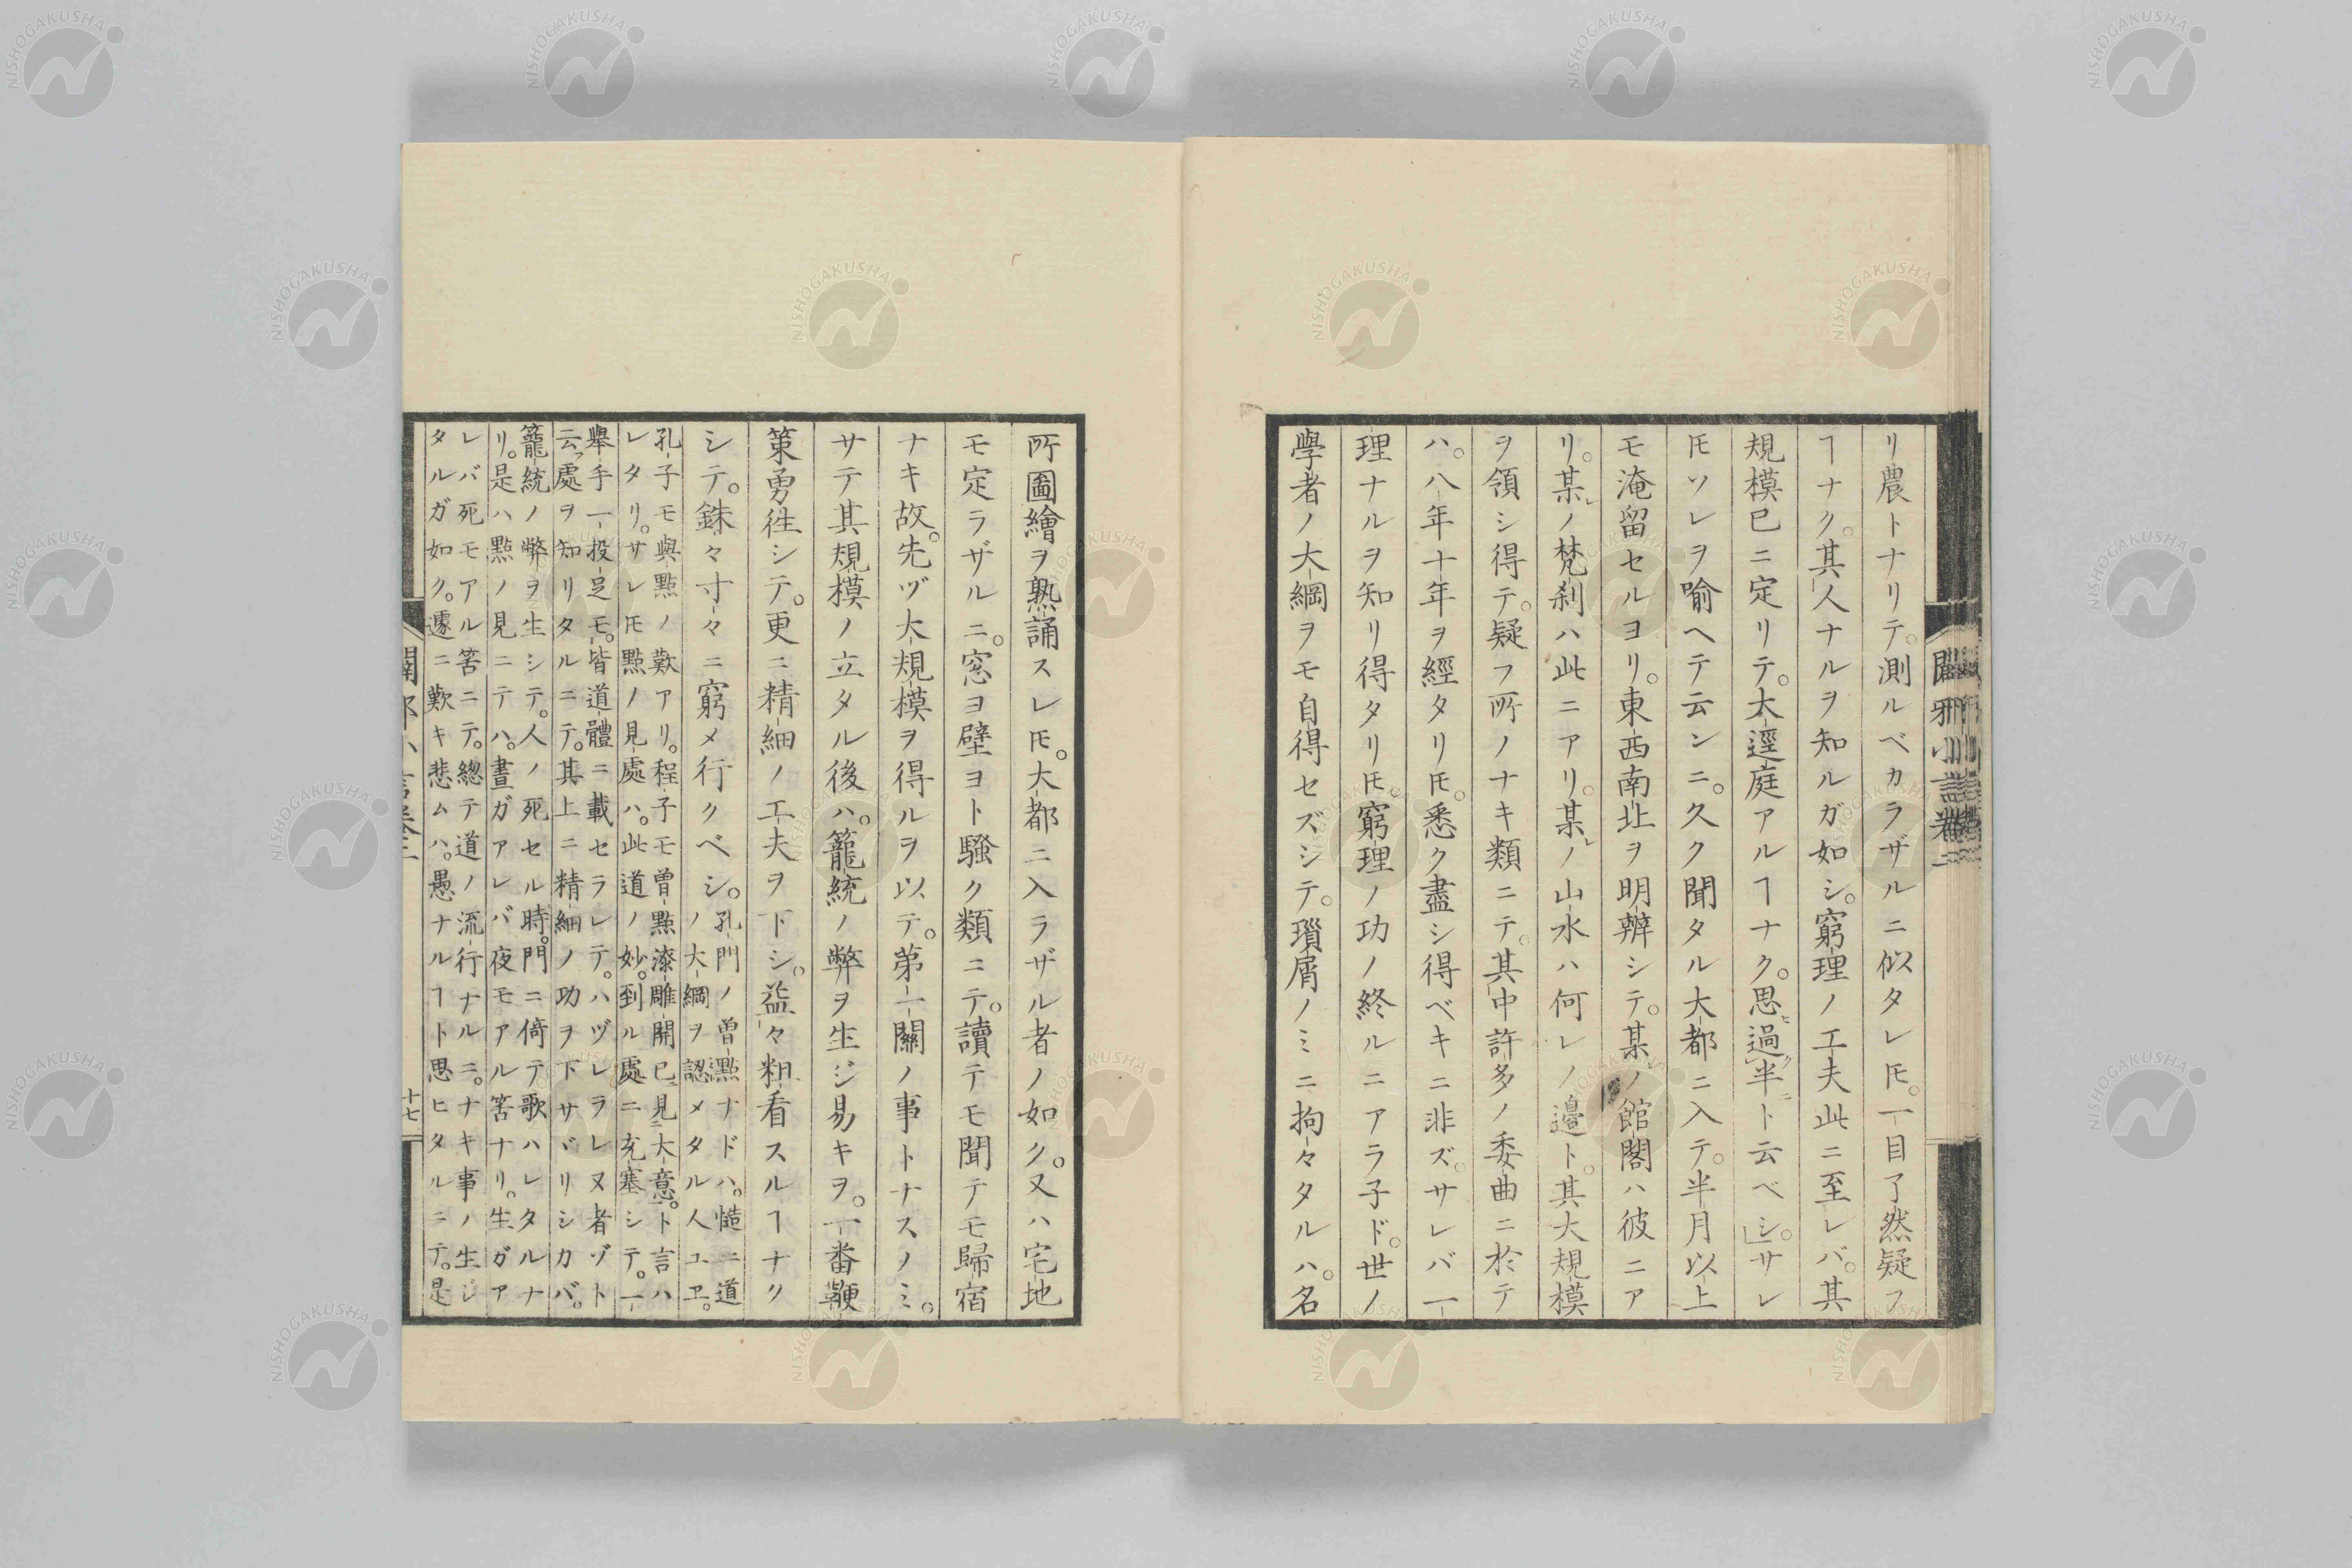 リ農トナリテ。測ルベカラザルニ似タレ𪜈。一目了然疑フ
ヿナク。其人ナルヲ知ルガ如シ。窮理ノ工夫此ニ至レバ。其
規模已ニ定リテ。大逕庭アルヿナク。思過半ト云ベシ。サレ
𪜈ソレヲ喩ヘテ云ンニ。久ク聞タル大都ニ入テ。半月以上
モ淹留セルヨリ。東西南北ヲ明辨シテ。某ノ館閣ハ彼ニア
リ。某ノ梵刹ハ此ニアリ。某ノ山水ハ何レノ邊ト。其大規模
ヲ領シ得テ。疑フ所ノナキ類ニテ。其中許多ノ委曲ニ於テ
ハ。八年十年ヲ經タリ𪜈。悉ク盡シ得ベキニ非ズ。サレバ一
理ナルヲ知リ得タリ𪜈。窮理ノ功ノ終ルニアラ子ド。世ノ
學者ノ大綱ヲモ自得セズシテ。瑣屑ノミニ拘々タルハ。名
所圖繪ヲ熟誦スレ𪜈。大都ニ入ラザル者ノ如ク。又ハ宅地
モ定ラザルニ。窓ヨ壁ヨト騷ク類ニテ。讀テモ聞テモ歸宿
ナキ故。先ヅ大規模ヲ得ルヲ以テ。第一關ノ事トナスノミ。
サテ其規模ノ立タル後ハ。籠統ノ弊ヲ生ジ易キヲ。一番鞭
策勇徃シテ。更ニ精細ノ工夫ヲ下シ。益々粗看スルヿナク
シテ。銖々寸々ニ窮メ行クベシ。孔門ノ曾點ナドハ。慥ニ道
ノ大綱ヲ認メタル人ユヱ。
孔子モ與點ノ歎アリ。程子モ曾點漆雕開已見大意。ト言ハ
レタリ。サレ𪜈點ノ見處ハ。此道ノ妙。到ル處ニ充塞シテ。一
舉手一投足モ。皆道體ニ載セラレテ。ハヅレラレヌ者ゾト
云處ヲ知リタルニテ。其上ニ精細ノ功ヲ下サヾリシカバ。
籠統ノ弊ヲ生シテ。人ノ死セル時。門ニ倚テ歌ハレタルナ
リ。是ハ點ノ見ニテハ。晝ガアレバ夜モアル筈ナリ。生ガア
レバ死モアル筈ニテ。總テ道ノ流行ナルニ。ナキ事ノ生ジ
タルガ如ク。遽ニ歎キ悲ムハ。愚ナルヿト思ヒタルニテ。是
十七